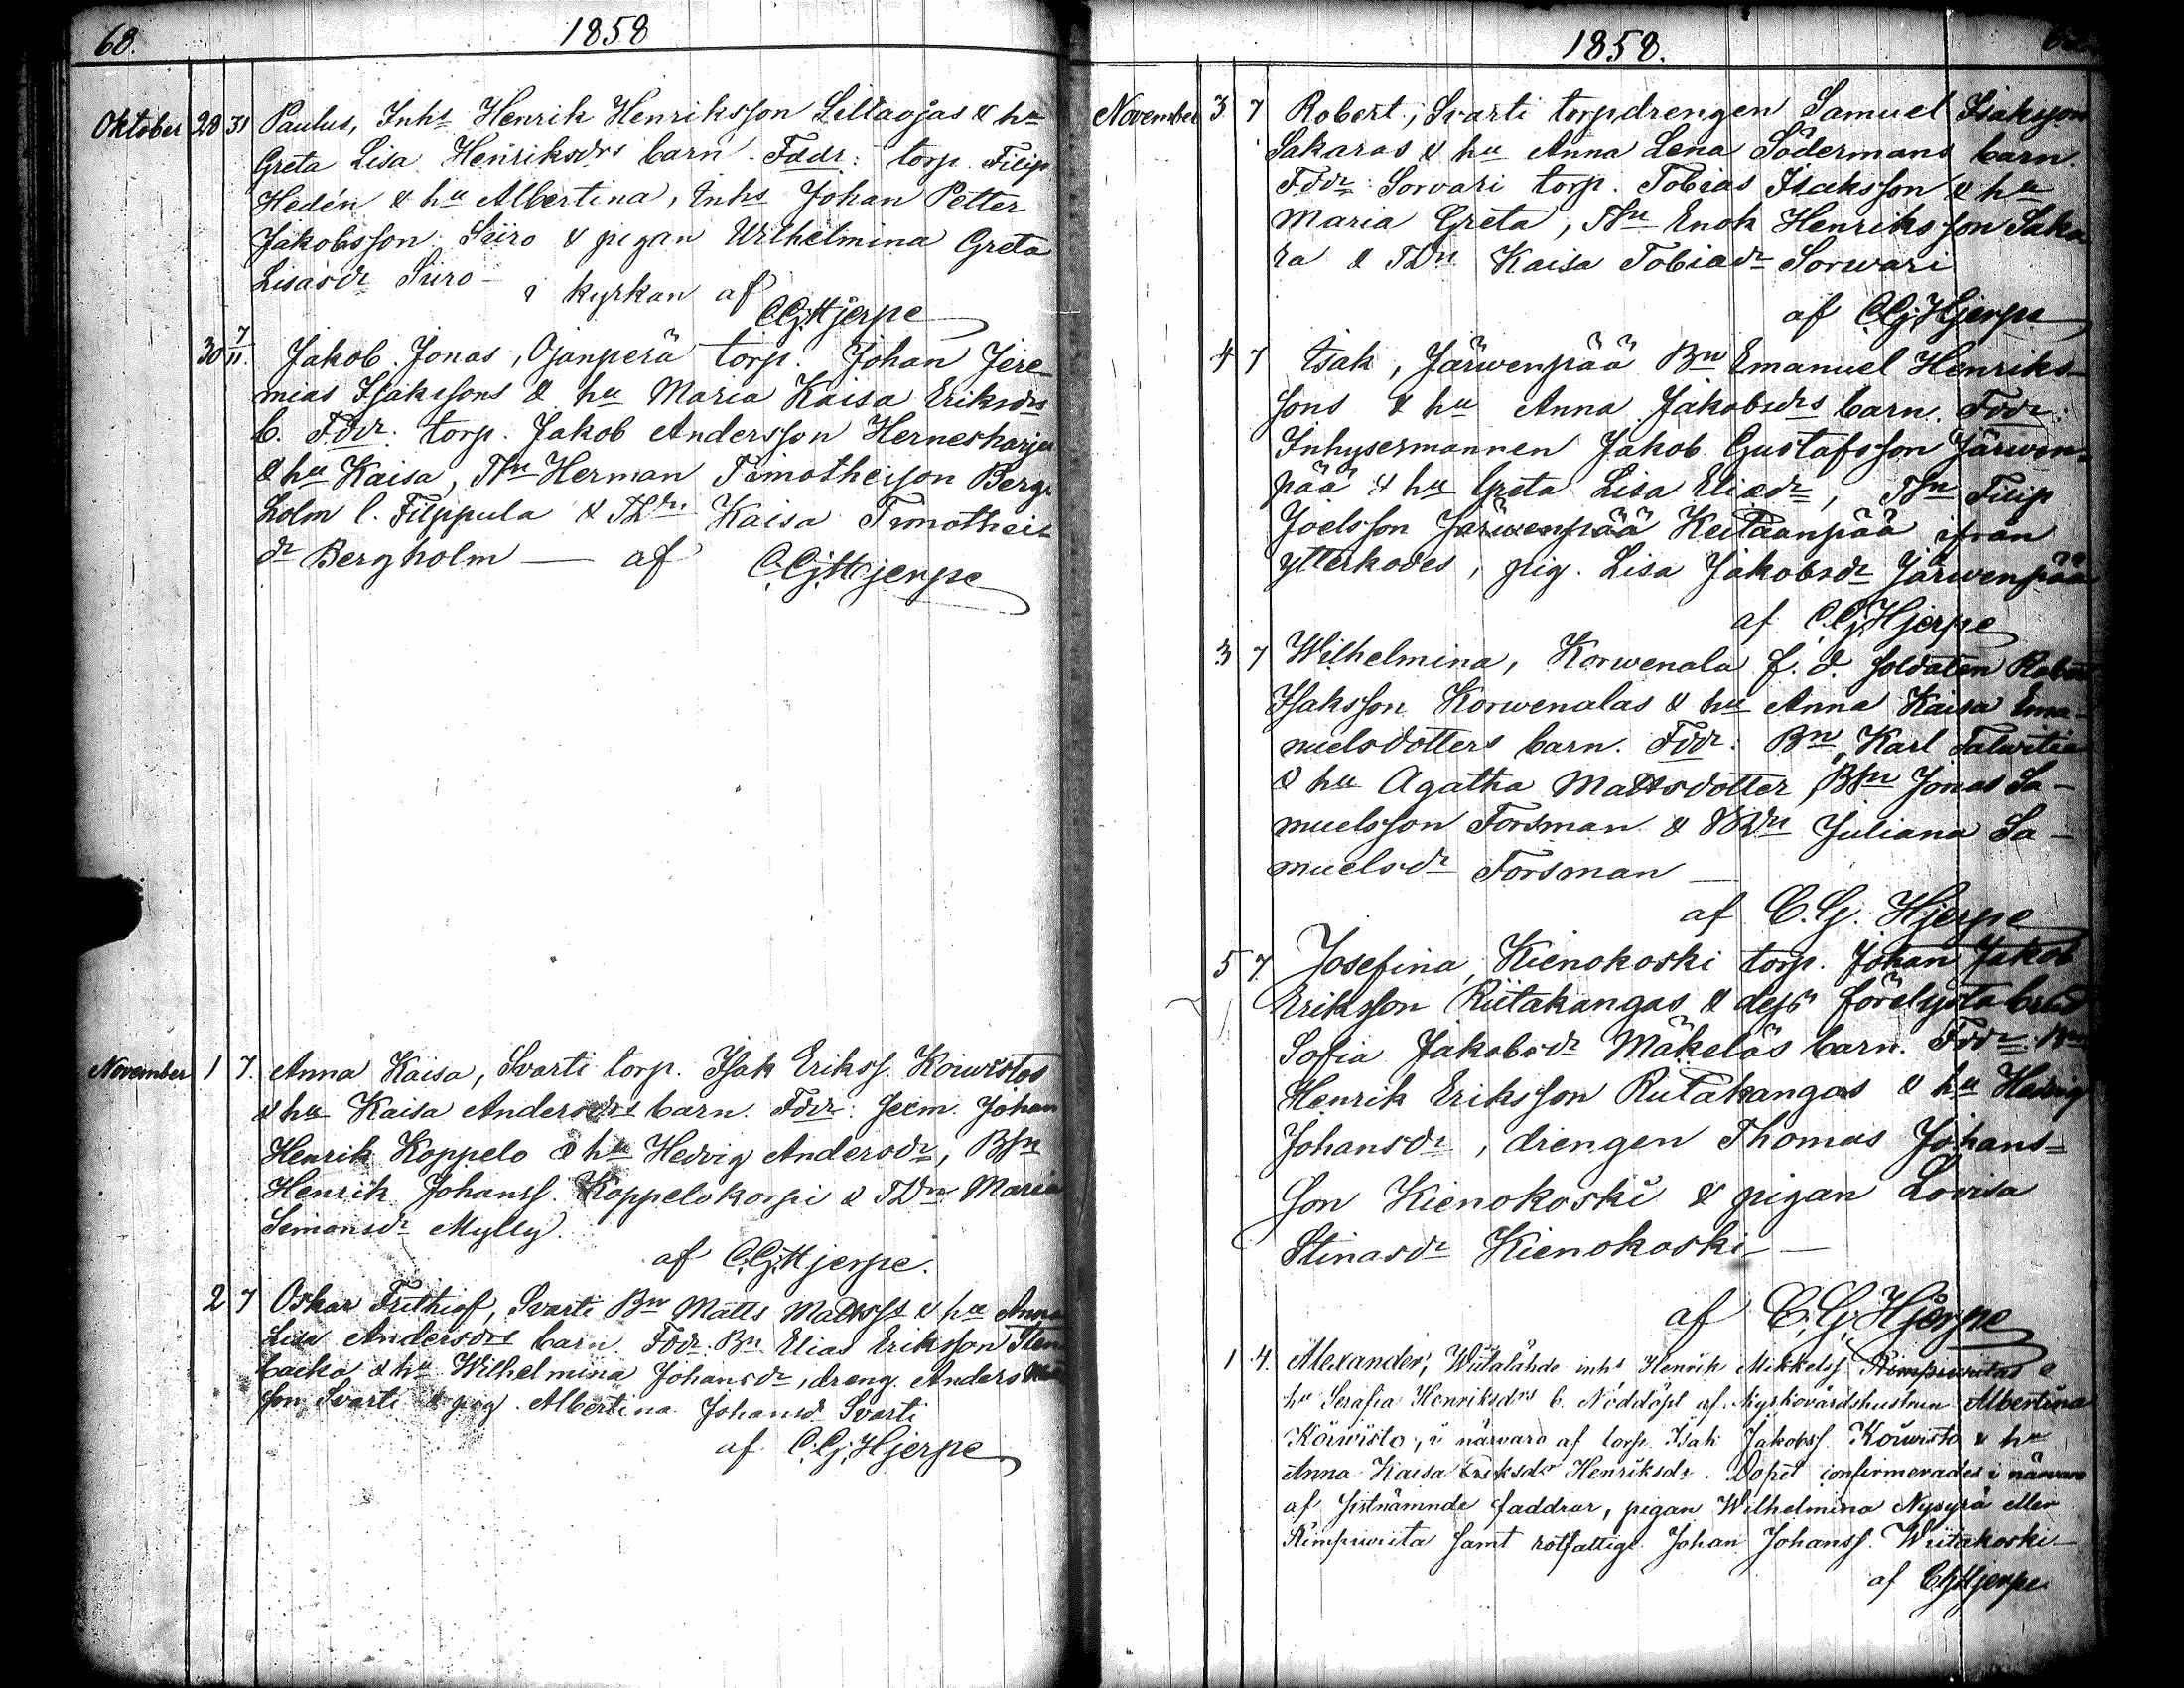 68.
1858
Oktober 28 31 Paulus, Inhs Henrik Henriksson Siltaojas & hu
Greta Lisa Henriksdrs barn. Fddr: torp. Filip
Hedén & hu Albertina, Inhs Johan Petter
Jakobsson Siiro & pigan Wilhelmina Greta
Lisasdr Siiro – i kyrkan af
CGHjerpe
30 7/11. Jakob Jonas, Ojanperä torp. Johan Jere-
mias Isakssons & hu Maria Kaisa Eriksdrs
b. Fddr. torp. Jakob Andersson Hernesharju
& hu Kaisa, TSn Herman Timotheison Berg-
holm l. Filppula & TDr. Kaisa Timothei
dr Bergholm — af
C.G.Hjerpe
November 1 7. Anna Kaisa, Svarti torp. Isak Erikss. Koiwistos
& hu Kaisa Andersdrs barn. Fddr: Johan
Henrik Koppelo & hu Hedvig Andersdr, BSn
Henrik Johanss. Koppelokorpi & TDn Maria
Simonsdr Mylly.
af C.G.Hjerpe.
2 7 Oskar Frithiof, Svarti Bn Matts Mattss & hu Anna
Lisa Andersdrs barn. Fddr. Bn Elias Eriksson Sten
backa & hu Wilhelmina Johansdr, dreng. Anders
son Svarti & pig. Albertina Johansd Svarti
af C.G.Hjerpe
1858.
November 3 7 Robert, Svarti torpdrengen Samuel Isaksson
Sakaras & hu Anna Lena Södermans barn.
Fddr: Sorvari torp. Tobias Isaksson & hu
Maria Greta, TSn Enok Henriksson Saka
ra & TDn Kaisa Tobiadr Sorwari
af C.G.Hjerpe
4 7 Isak, Järwenpää Bn Emanuel Henriks-
sons & hu Anna Jakobsdrs barn. Fddr:
Inhysesmannen Jakob Gustafsson Järwen-
pää & hu Greta Lisa Eliædr, TSn Filip
Joelsson Järwenpää Keitaanpää ifrån
ytterkades, pig. Lisa Jakobsdr Järwenpää
af C.G.Hjerpe
3 7 Wilhelmina, Korwenala f. d. soldaten Robert
Isaksson Korwenalas & hu Anna Kaisa Ema-
nuelsdotters barn. Fddr: Bn Karl Talwitie
& hu Agatha Mattsdotter, BSn Jonas Sa-
muelsson Forsman & BDn Juliana Sa-
muelsdr Forsman —
af C.G. Hjerpe
5 7. Josefina, Kienokoski torp. Johan Jakob
Eriksson Riitakangas & dess förelysta brud
Sofia Jakobsdr Mäkeläs barn. Fddr: Bn
Henrik Eriksson Riitakangas & hu Hedvig
Johansdr, drengen Thomas Johans=
son Kienokoski & pigan Lovisa
Stinasdr Kienokoski —
af C.G.Hjerpe
1 4. Alexander, Wiitalähde inhs Henrik Mikkelss. Rimpiwiitas &
hu Serafia Henriksdrs b. Nöddöpt af Kyrkovärdshustrun Albertina
Koiwisto, i närvaro af torp. Isak Jakobss. Koiwisto & hu
Anna Kaisa Eriksdr Henriksdr. Dopet confirmerades i närvaro
af sistnämnde faddrar, pigan Wilhelmina eller
Rimpiwiita samt rotfattige Johan Johanss. Wiitakoski –
af CGHjerpe